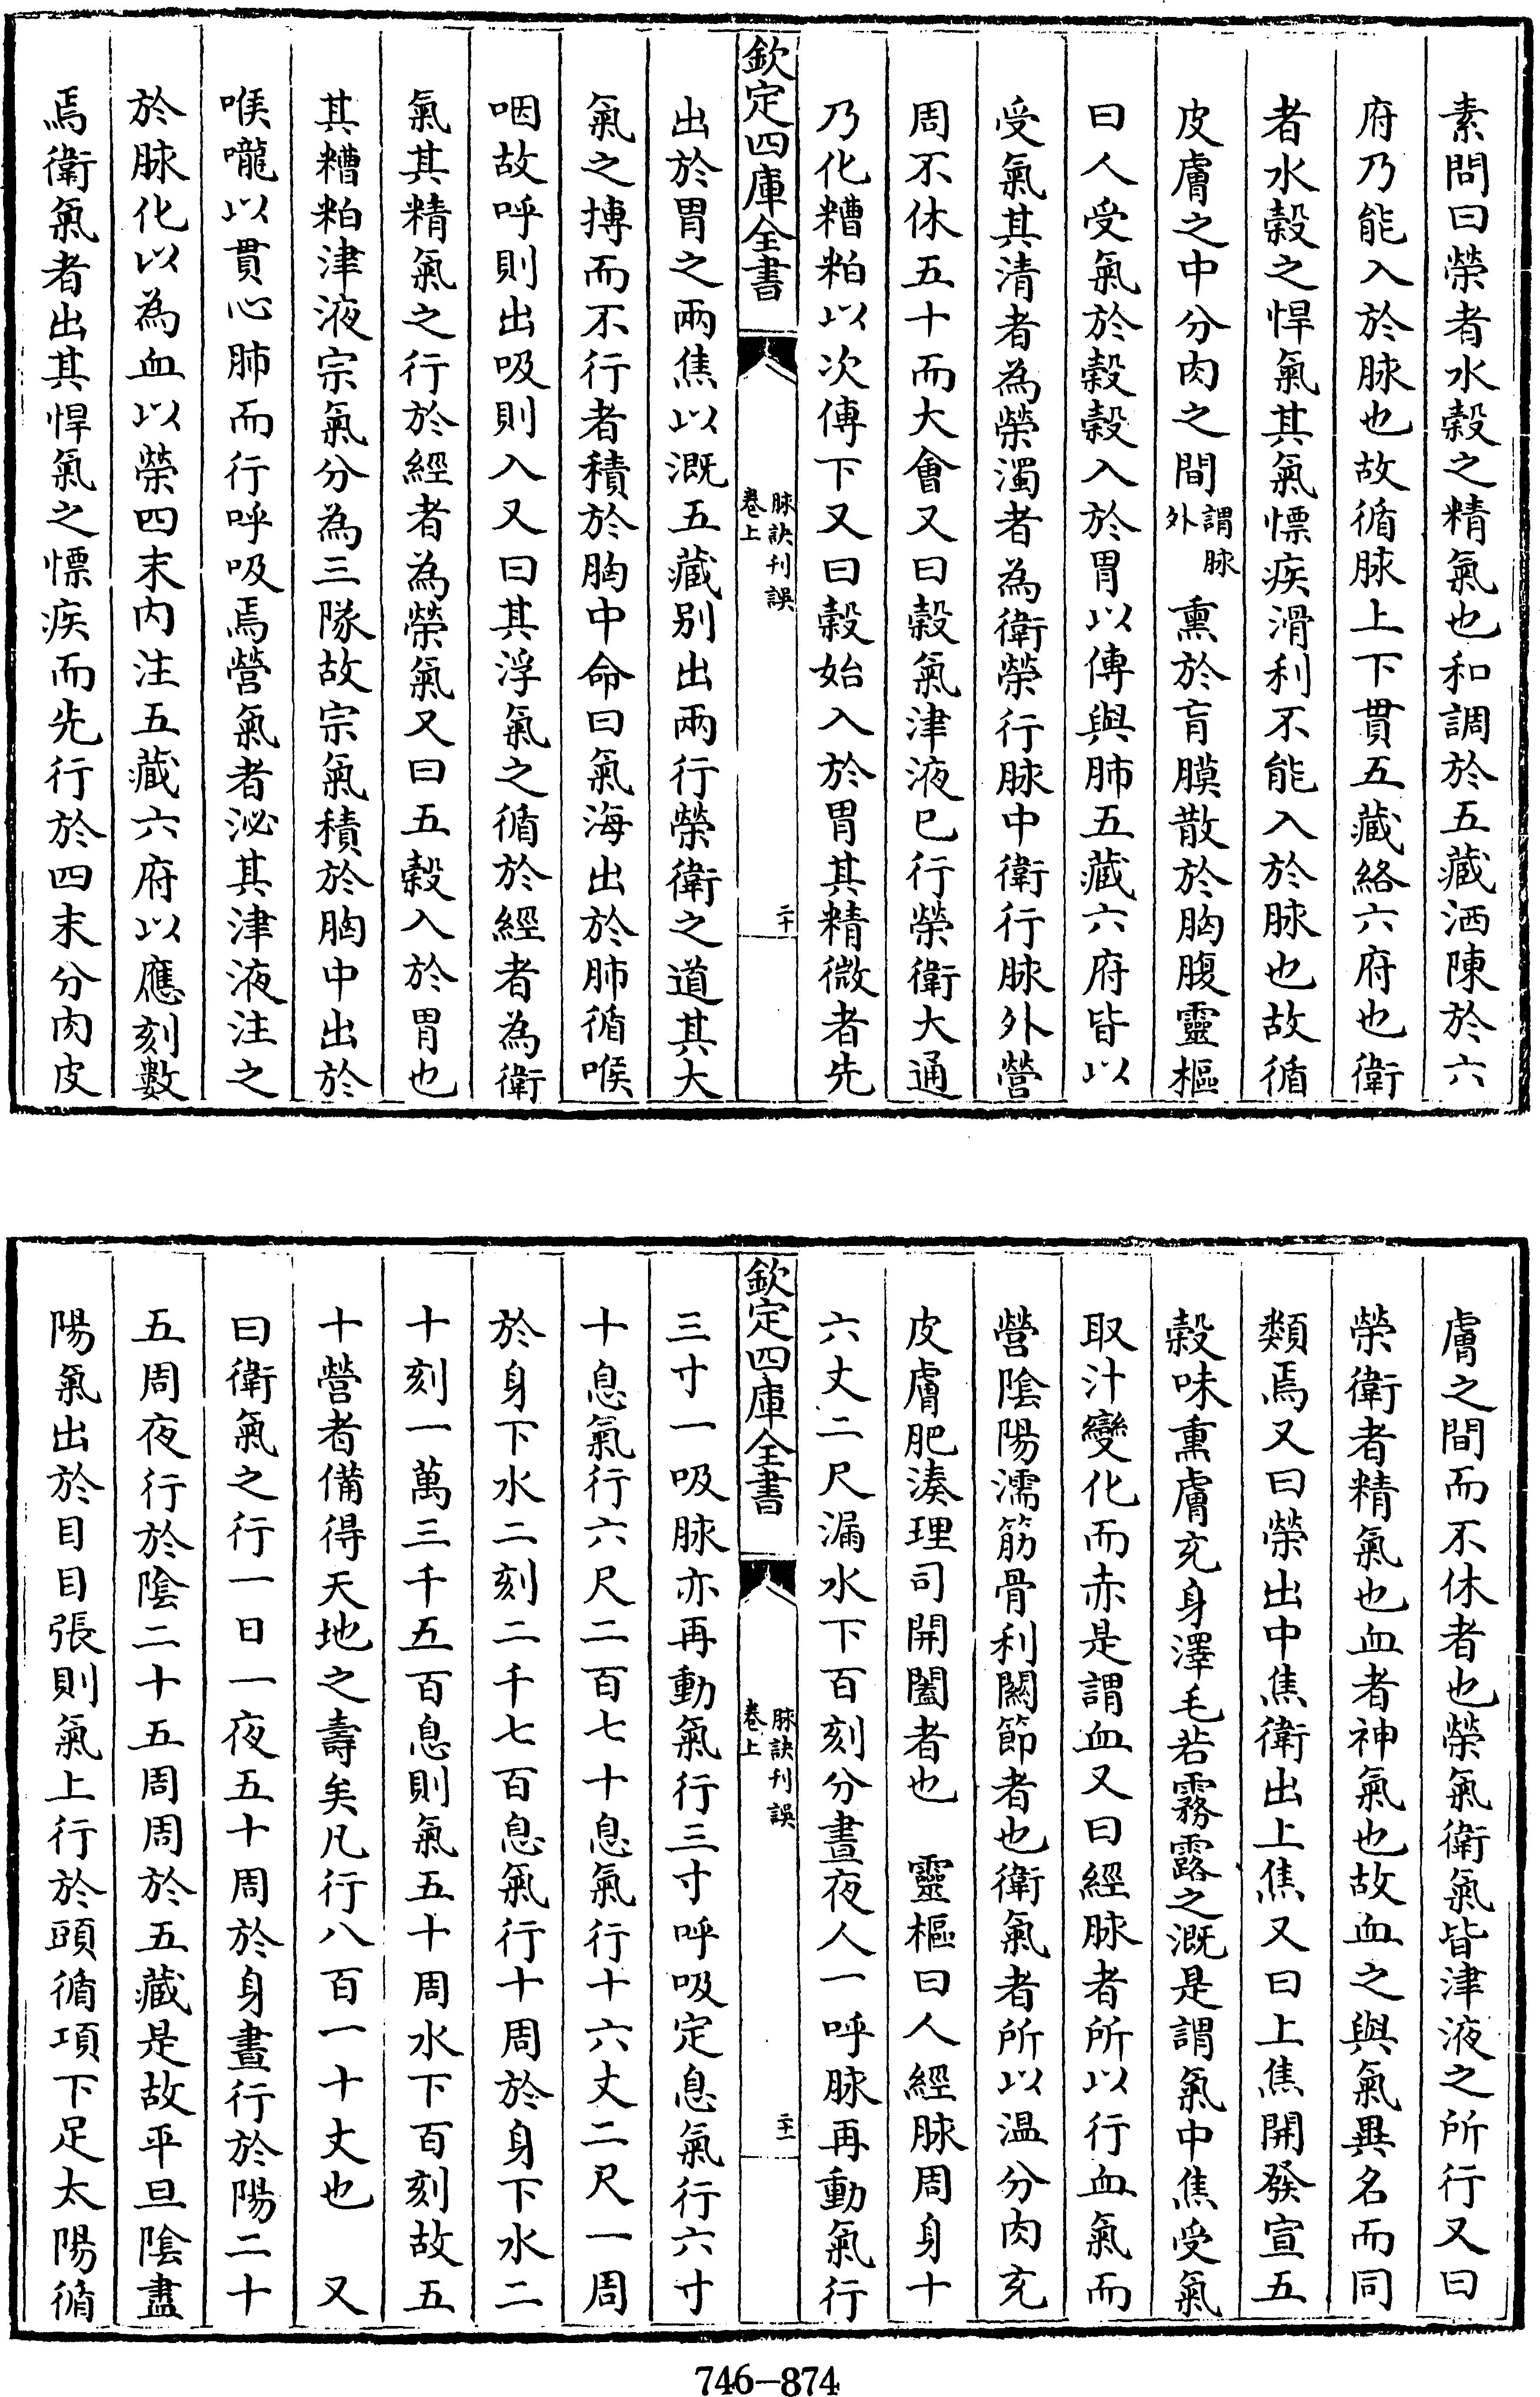 素問曰榮者水穀之精氣也和調於五藏洒陳於六
府乃能入於脉也故循脉上下貫五藏絡六府也衛
者水穀之悍氣其氣慓疾滑利不能入於脉也故循
皮膚之中分肉之間謂脉外熏於肓膜散於胸腹靈樞
曰人受氣於穀穀入於胃以傳與肺五藏六府皆以
受氣其清者為榮濁者為衛榮行脉中衛行脉外營
周不休五十而大會又曰穀氣津液已行榮衛大通
乃化糟粕以次傳下又曰穀始入於胃其精微者先
欽定四庫全書
脉訣刊誤
卷上
二十
出於胃之兩焦以溉五藏别出兩行榮衛之道其大
氣之搏而不行者積於胸中命曰氣海出於肺循喉
咽故呼則出吸則入又曰其浮氣之循於經者為衛
氣其精氣之行於經者為榮氣又曰五穀入於胃也
其糟粕津液宗氣分為三隊故宗氣積於胸中出於
喉嚨以貫心肺而行呼吸焉營氣者泌其津液注之
於脉化以為血以榮四末内注五藏六府以應刻數
焉衛氣者出其悍氣之慓疾而先行於四末分肉皮
膚之間而不休者也榮氣衛氣皆津液之所行又曰
榮衛者精氣也血者神氣也故血之與氣異名而同
類焉又曰榮出中焦衛出上焦又曰上焦開發宣五
穀味熏膚充身澤毛若霧露之溉是謂氣中焦受氣
取汁變化而赤是謂血又曰經脉者所以行血氣而
營陰陽濡筋骨利關節者也衛氣者所以温分肉充
皮膚肥湊理司開闔者也　靈樞曰人經脉周身十
六丈二尺漏水下百刻分晝夜人一呼脉再動氣行
欽定四庫全書
脉訣刊誤
卷上
二十一
三寸一吸脉亦再動氣行三寸呼吸定息氣行六寸
十息氣行六尺二百七十息氣行十六丈二尺一周
於身下水二刻二千七百息氣行十周於身下水二
十刻一萬三千五百息則氣五十周水下百刻故五
十營者備得天地之壽矣凡行八百一十丈也　又
曰衛氣之行一日一夜五十周於身晝行於陽二十
五周夜行於陰二十五周周於五藏是故平旦陰盡
陽氣出於目目張則氣上行於頭循項下足太陽循
746-874